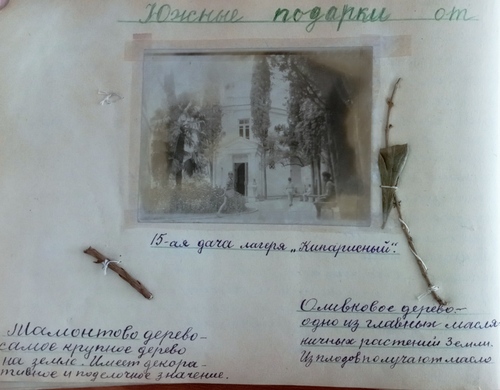 Южные подарки от
15-ая дача лагеря „Кипарисный".
Мамонтово дерево-
самое крупное дерево
на земле. Имеет декора-
тивное и поделочное значение.
Оливковое дерево-
одно из главных масля
ничных растений Земли.
Из плодов получают масло